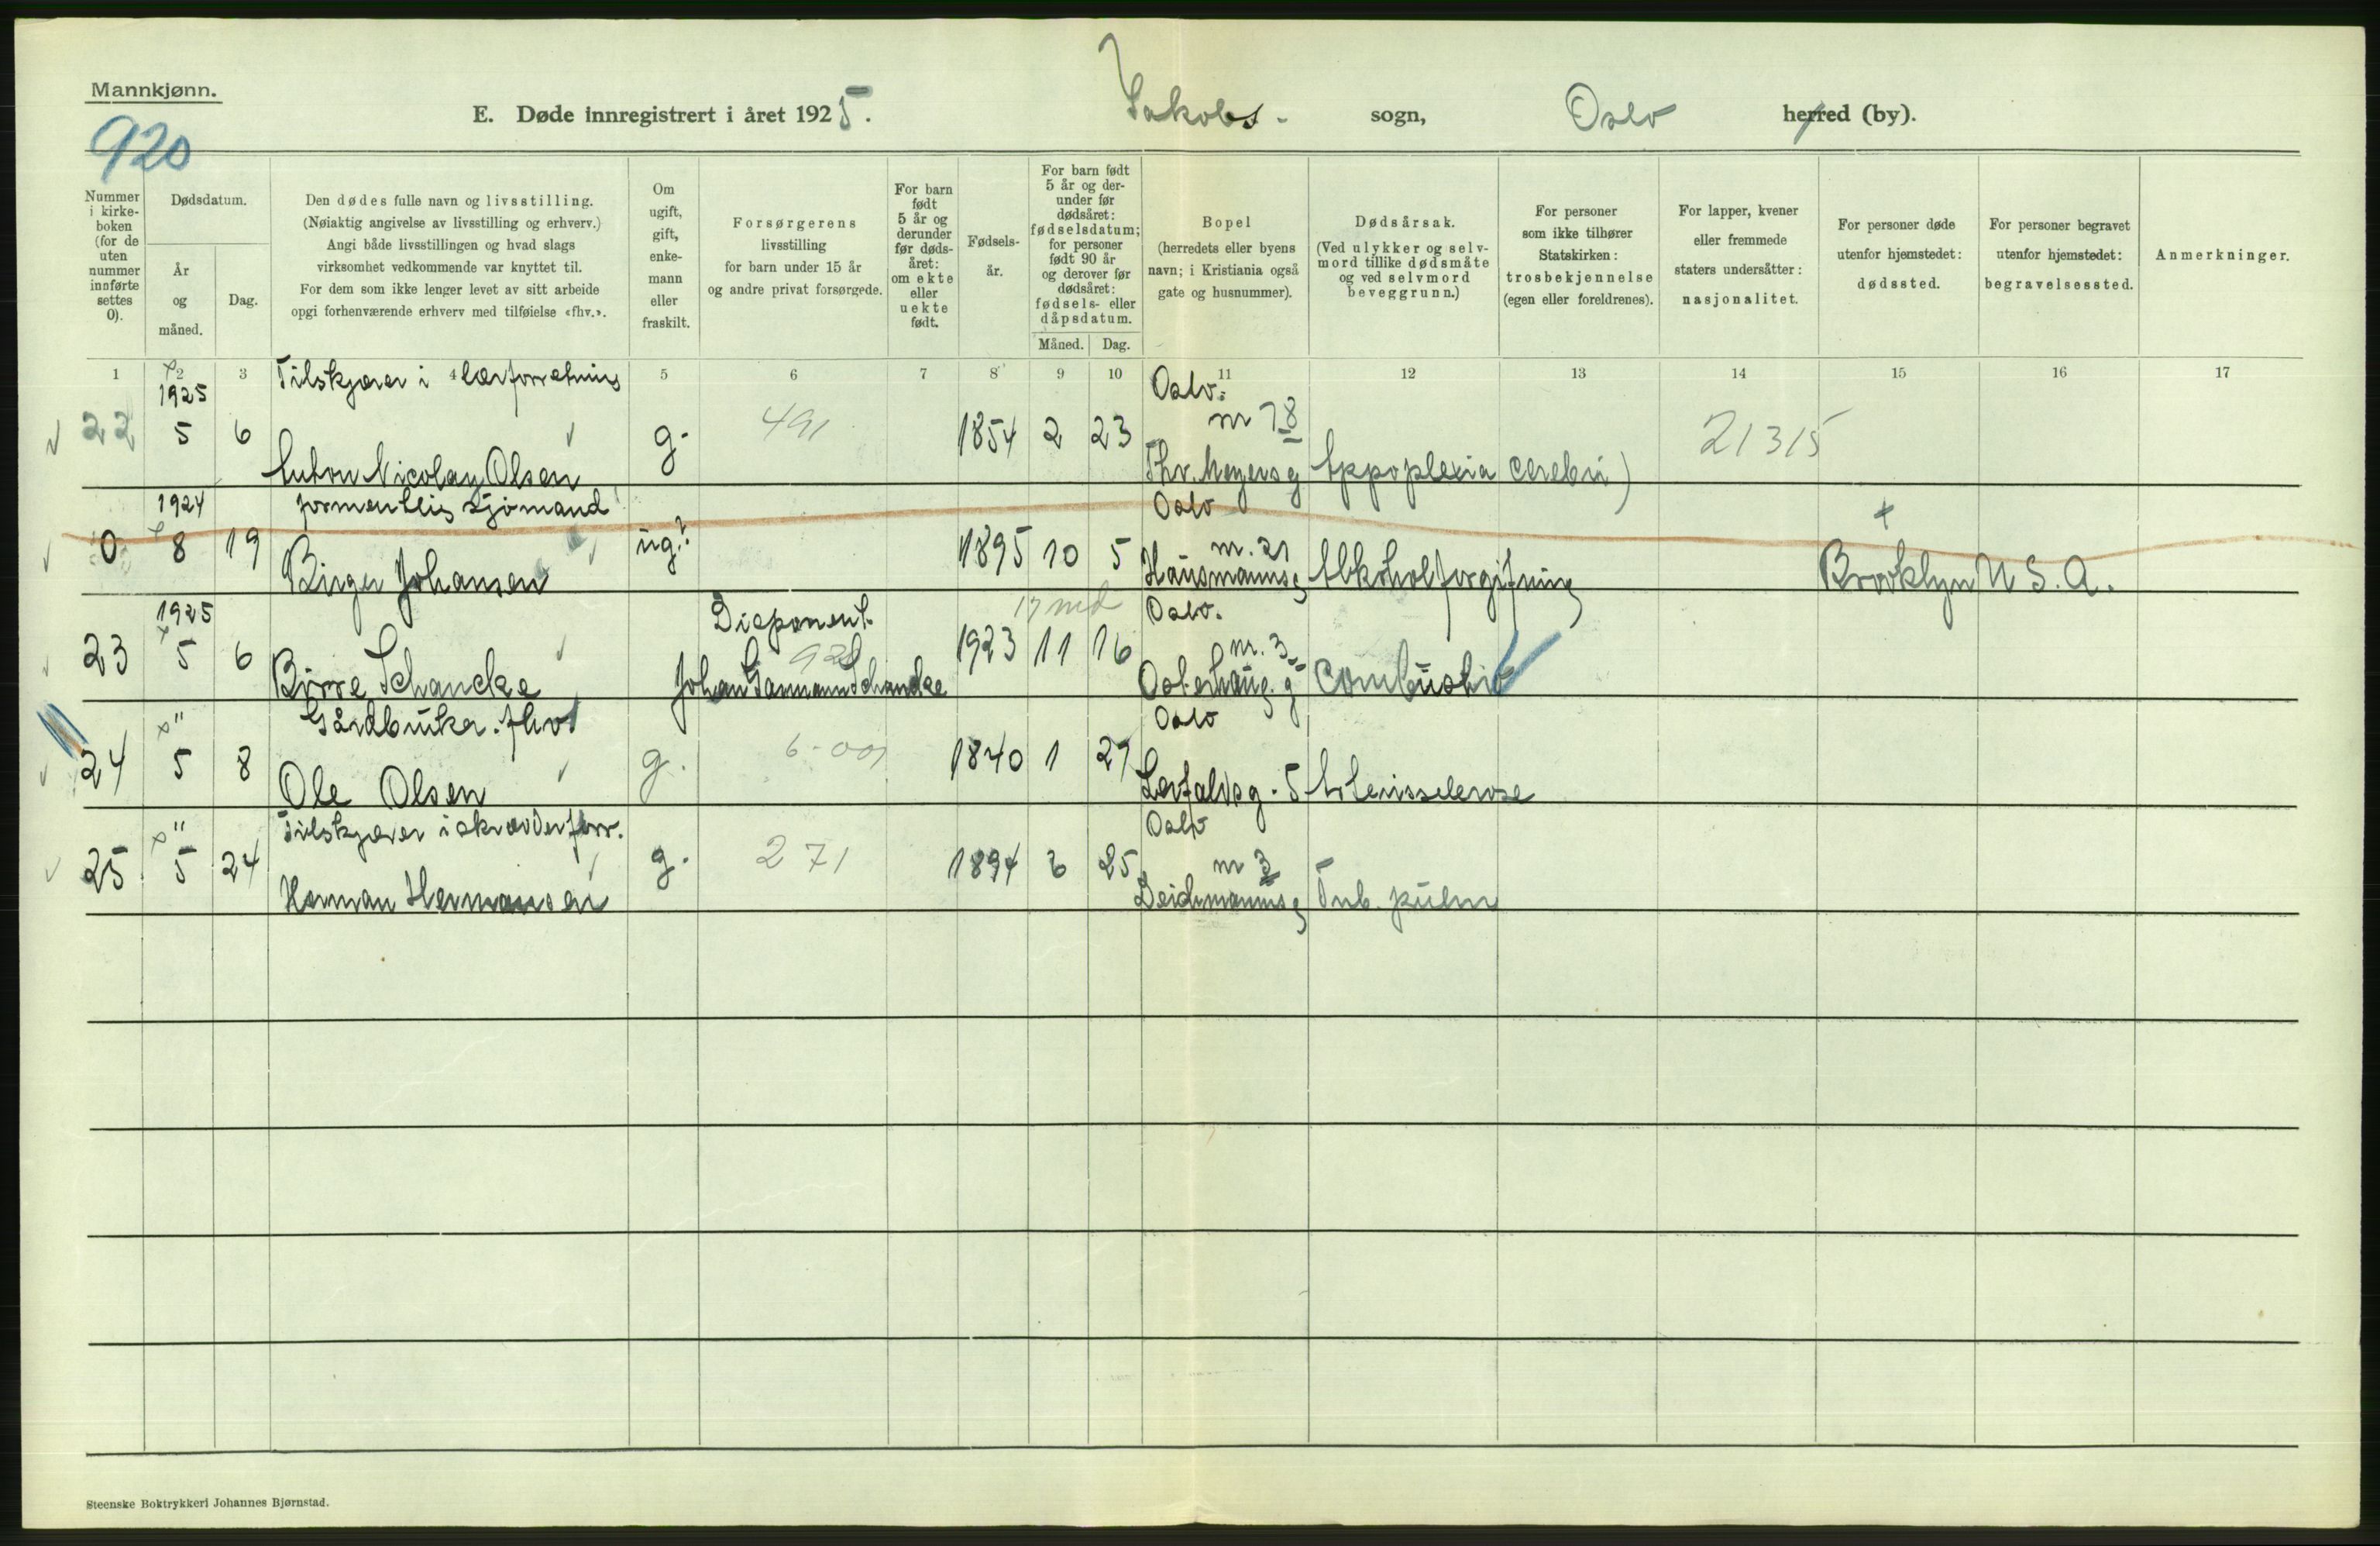 Mannkjønn.
E. Døde innregistrert i året 1925. Jakobs- sogn, Oslo herred (by).
920
Nummer i kirke-boken (for de uten nummer innførte settes 0).
Dødsdatum.
År og måned.
Dag.
Den dødes fulle navn og livsstilling.
(Nøiaktig angivelse av livsstilling og erhverv.)
Angi både livsstillingen og hvad slags
virksomhet vedkommende var knyttet til.
For dem som ikke lenger levet av sitt arbeide
opgi forhenværende erhverv med tilføielse «fhv.».
Om ugift, gift, enke-mann eller fraskilt.
Forsørgerens
livsstilling
for barn under 15 år
og andre privat forsørgede.
For barn født 5 år og derunder før døds-året: om ekte eller uekte født.
Fødsels-år.
For barn født 5 år og der-under før dødsåret: fødselsdatum; for personer født 90 år og derover før dødsåret: fødsels- eller dåpsdatum.
Måned. Dag.
Bopel
(herredets eller byens
navn; i Kristiania også
gate og husnummer).
Dødsårsak.
(Ved ulykker og selv-
mord tillike dødsmåte
og ved selvmord
beveggrunn.)
For personer
som ikke tilhører
Statskirken:
trosbekjennelse
(egen eller foreldrenes).
For lapper, kvener
eller fremmede
staters undersåtter:
nasjonalitet.
For personer døde
utenfor hjemstedet:
dødssted.
For personer begravet
utenfor hjemstedet:
begravelsessted.
Anmerkninger.
1 2 3 4 5 6 7 8 9 10 11 12 13 14 15 16 17
1925 Tilskjærer i lærforretning Oslo.
22 5 6 g. 491 1854 2 23 nr 78 21315
Anton Nicolay Olsen Thv. Meyersg Appoplexia cerebri)
1924 formentlig sjømand Oslo +
0 8 19 Birger Johansen ug.? 1895 10 5 nr. 21 Hausmannsg Alkoholforgiftning Brooklyn U S. A.
1925 Disponent. 17 md Oslo.
23 5 6 Birre Schancke Johan Garmann Schancke 920 1923 11 16 nr. 3 Osterhausg. Combustio
" Gårdbruker. fhv Oslo
24 5 8 Ole Olsen g. 6-001 1840 1 27 Lerfaldsg. 5 Arteriossclerose
" Tilskjærer i skrædderforr. Oslo
25 5 24 Herman Hermansen g. 271 1894 6 25 nr 3 Deichmannsg Tub. pulm
Steenske Boktrykkeri Johannes Bjørnstad.